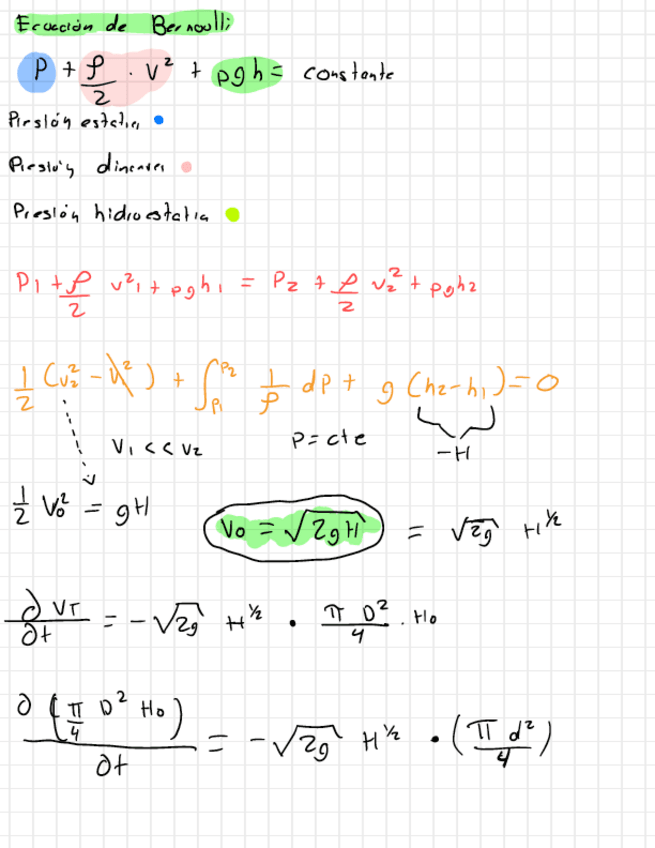 Ecuación de Bernoulli
P + ρ/2 · V² + ρgh = constante
Presión estatica
Presión dinamica
Presión hidroestatica
P1 + ρ/2 v²1 + ρgh1 = P2 + ρ/2 v2² + ρgh2
1/2 (v2² - v1²) + ∫P1^P2 1/ρ dP + g (h2-h1) = 0
V1 << V2 P = cte -H
1/2 Vo² = gH Vo = √2gH = √2g H^½
∂VT/∂t = -√2g H^½ · π D²/4 · Ho
∂(π/4 D² Ho)/∂t = -√2g H^½ · (π d²/4)